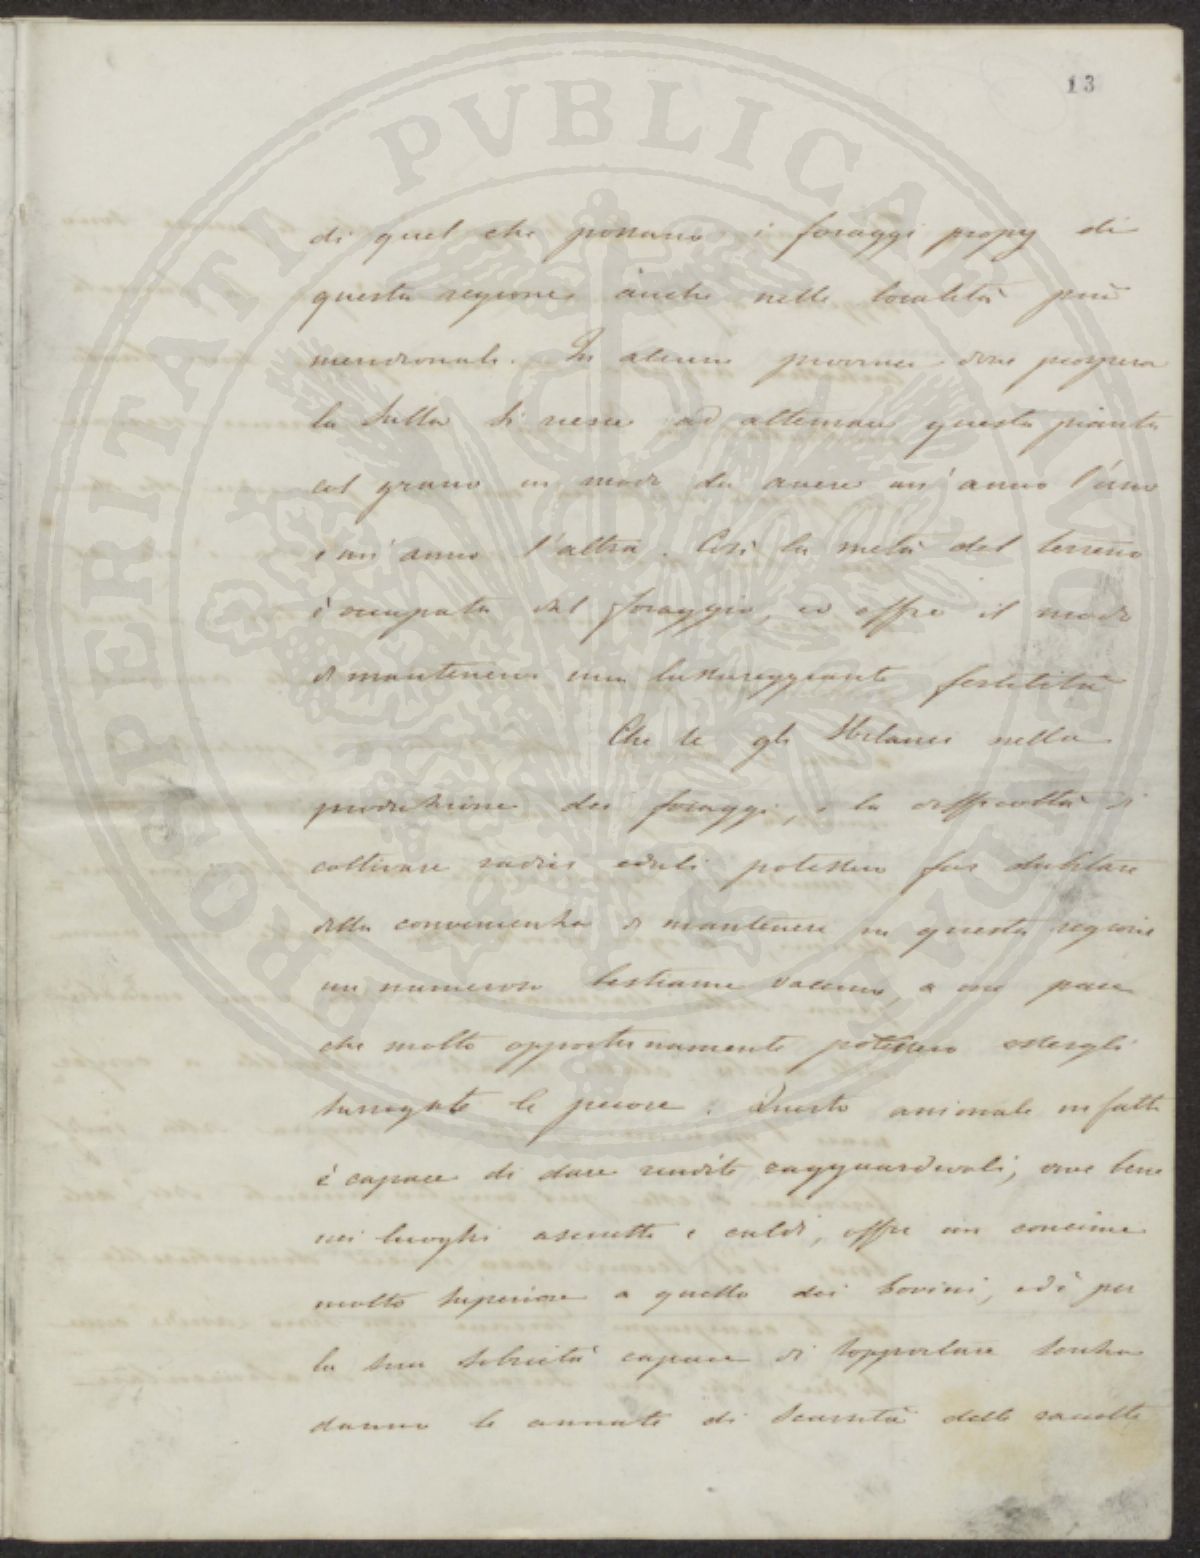 13
di quel che possano i foraggi propry di
questa regione anche nelle località più
meridionali. In alcune provincie dove prospera
la Sulla si riesce ad alternare questa pianta
col grano in modo da avere un'anno l'uno
e un'anno l'altra. Così la metà del terreno
è occupata dal foraggio, ed offre il modo
di mantenervi una lussureggiante fertilità
Che se gli nella
produzione dei foraggi, e la difficoltà di
coltivare radici eduli potessero far dubitare
della convenienza di mantenere in questa regione
un numeroso bestiame vaccino, a me pare
che molto opportunamente potessero essergli
surrogate le pecore. Questo animale infatti
è capace di dare rendite ragguardevoli, vive bene
nei luoghi asciutti e caldi, offre un concime
molto superiore a quello dei bovini, ed è per
la sua sobrietà capace di sopportare senza
danno le annate di scarsità delle raccolte
PROSPERITATI PVBLICAE AVGENDAE